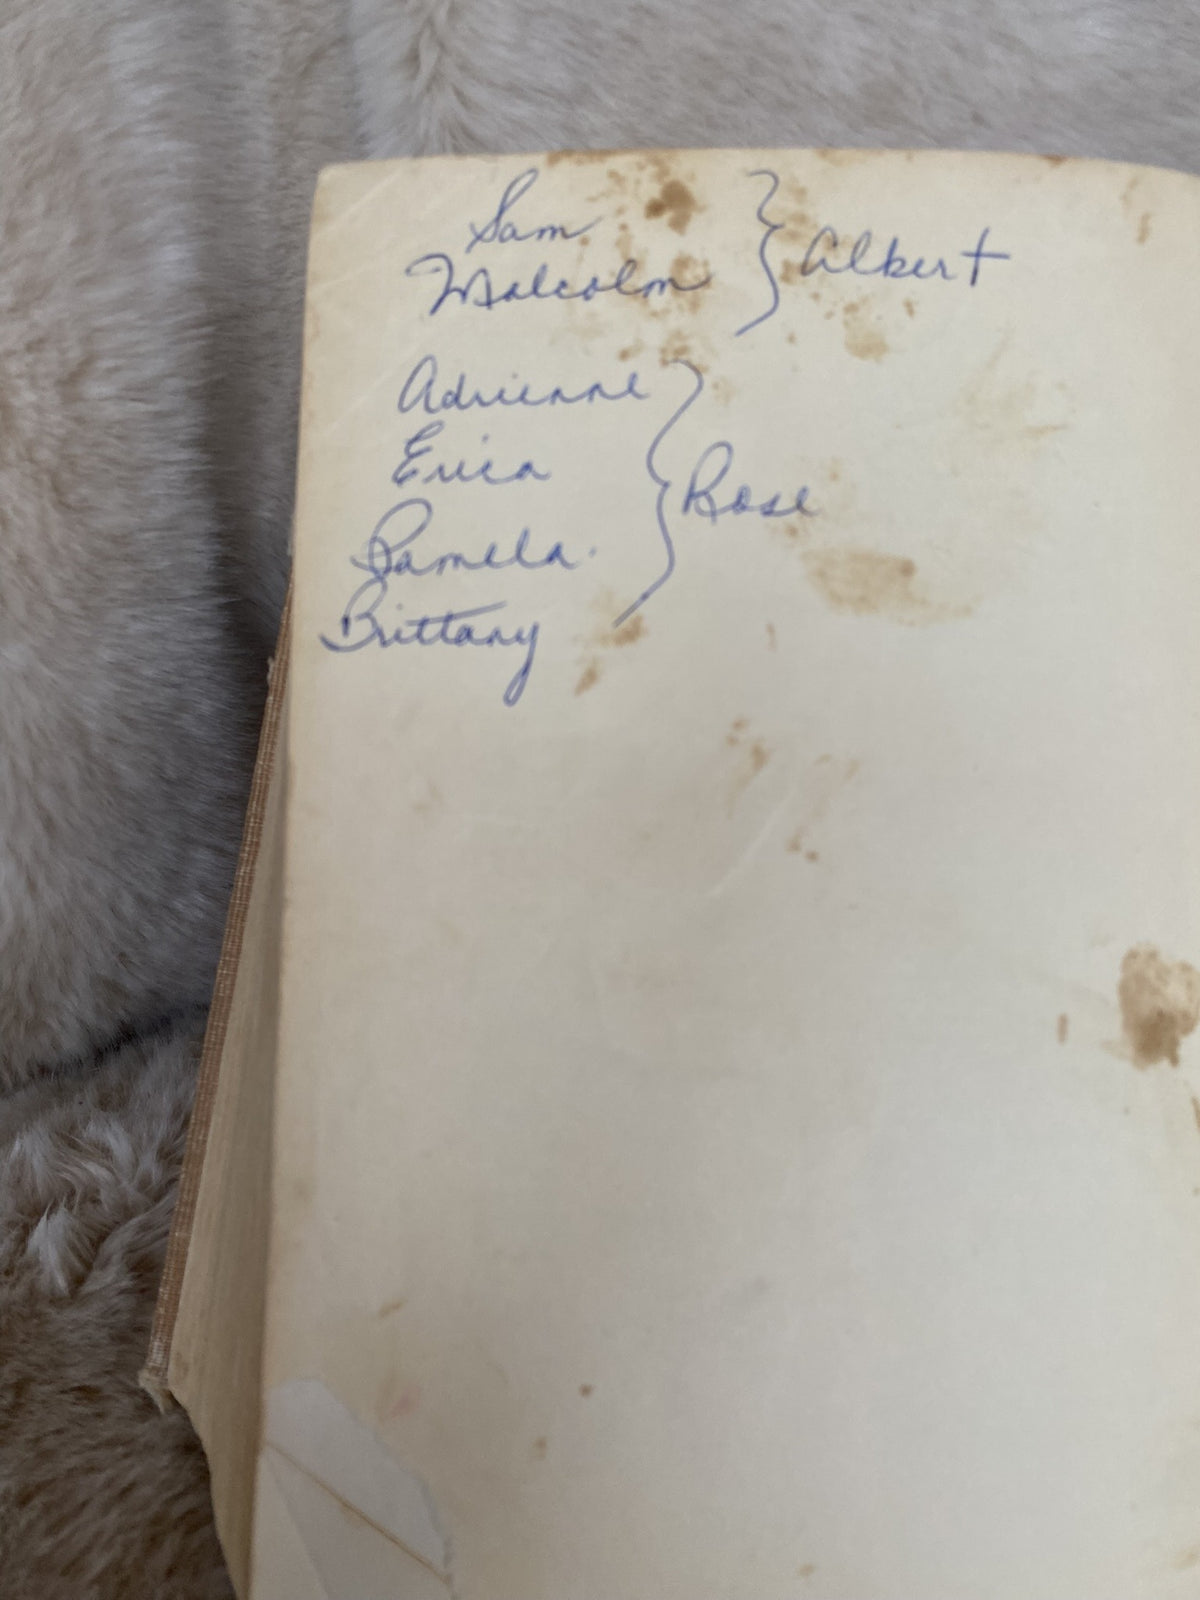 Sam
Malcolm } Albert
Adrienne
Erica
Pamela. } Rose
Brittany